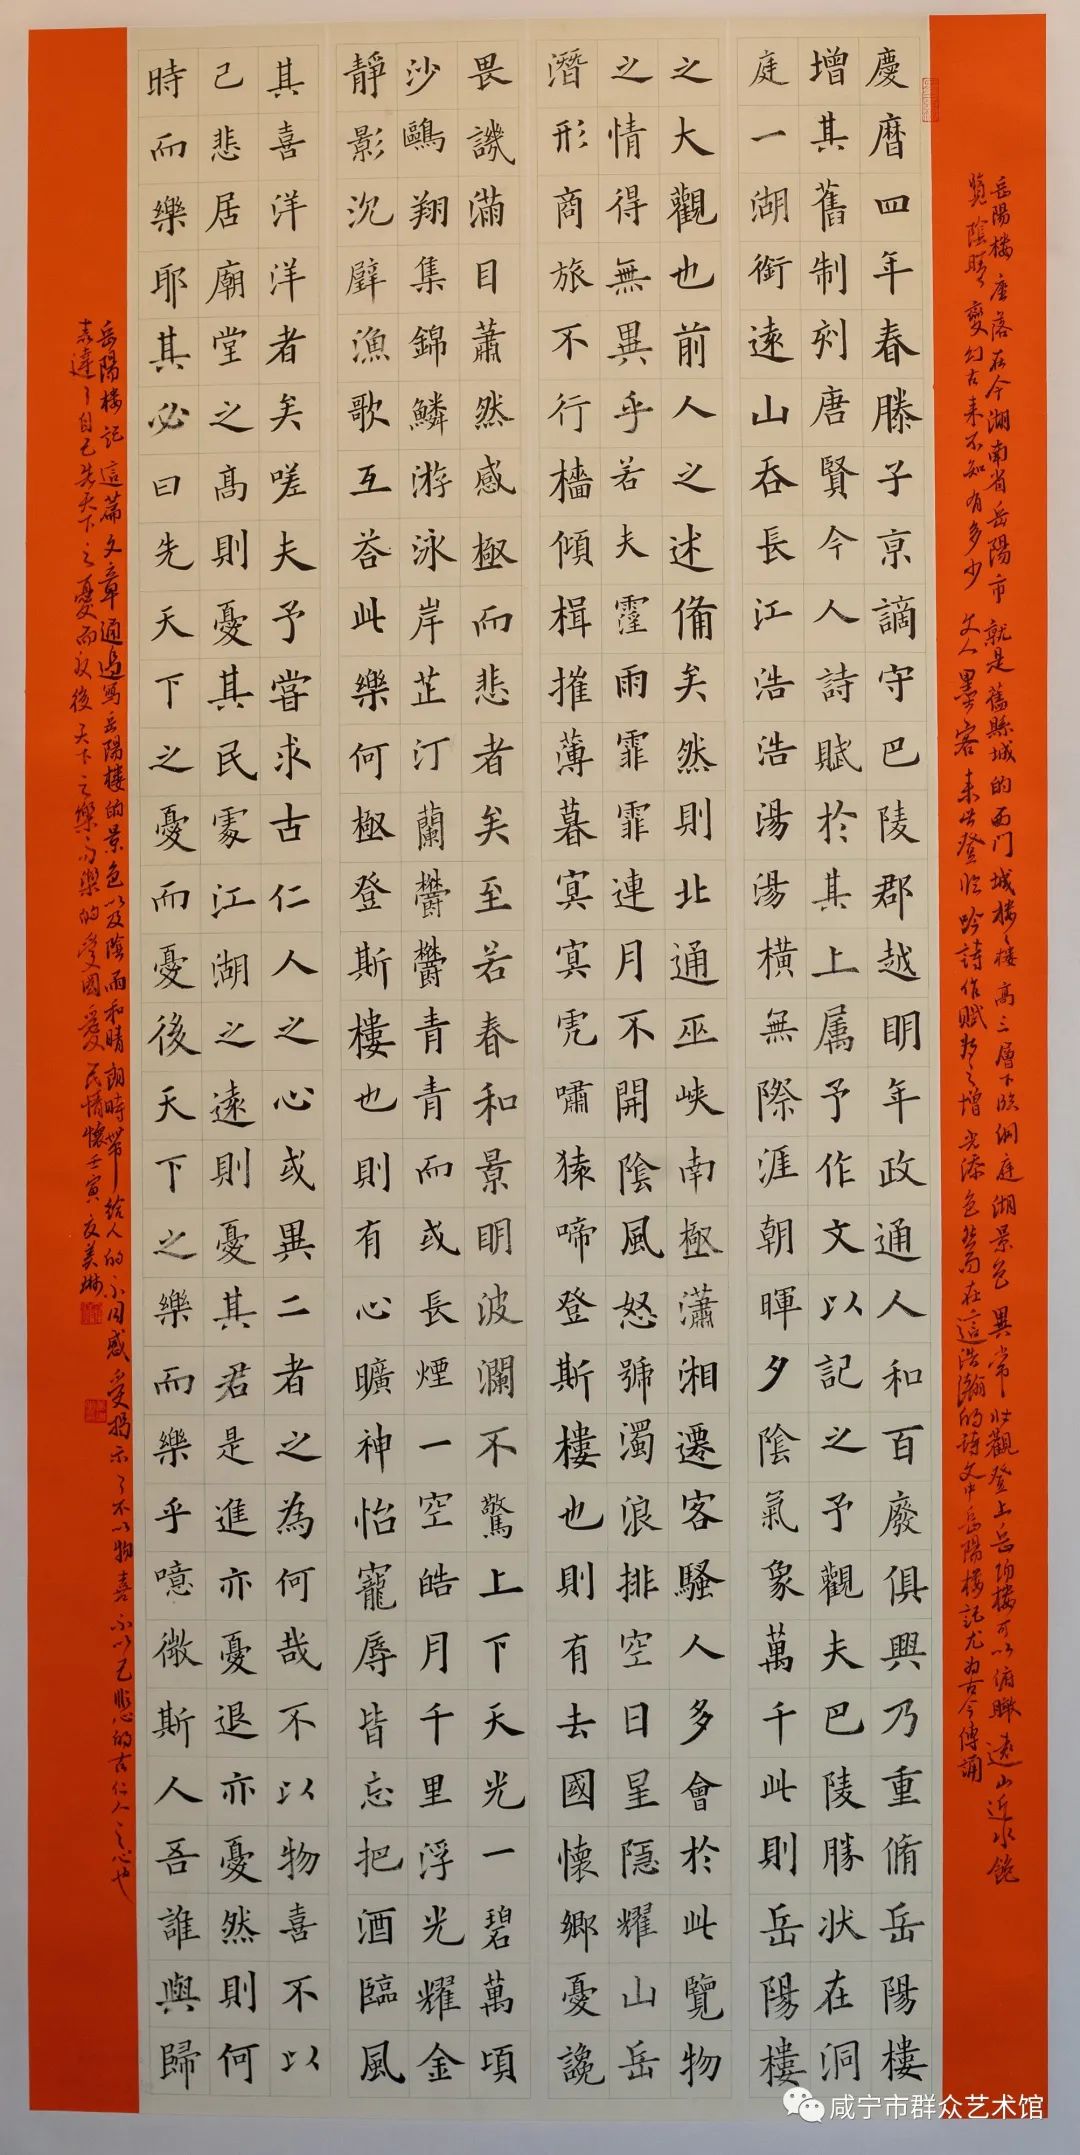 岳陽樓座落在今湖南省岳陽市就是舊縣城的西門城樓樓高三層下臨洞庭湖景色異常壯觀登上岳陽樓可以俯瞰遠山近水飽
覽陰晴變幻古来不知有多少文人墨客来此登臨吟詩作賦為之增光添色然而在這浩瀚的詩文中岳陽樓記尤為古今傳誦
慶曆四年春滕子京謫守巴陵郡越明年政通人和百廢俱興乃重脩岳陽樓
增其舊制刻唐賢今人詩賦於其上属予作文以記之予觀夫巴陵勝状在洞
庭一湖銜遠山吞長江浩浩湯湯橫無際涯朝暉夕陰氣象萬千此則岳陽樓
之大觀也前人之述備矣然則北通巫峽南極瀟湘遷客騷人多會於此覽物
之情得無異乎若夫霪雨霏霏連月不開陰風怒號濁浪排空日星隱耀山岳
潛形商旅不行檣傾楫摧薄暮冥冥虎嘯猿啼登斯樓也則有去國懷鄉憂讒
畏譏滿目蕭然感極而悲者矣至若春和景明波瀾不驚上下天光一碧萬頃
沙鷗翔集錦鱗游泳岸芷汀蘭欝欝青青而或長煙一空皓月千里浮光耀金
靜影沉璧漁歌互荅此樂何極登斯樓也則有心曠神怡寵辱皆忘把酒臨風
其喜洋洋者矣嗟夫予嘗求古仁人之心或異二者之為何哉不以物喜不以
己悲居廟堂之高則憂其民處江湖之遠則憂其君是進亦憂退亦憂然則何
時而樂耶其必曰先天下之憂而憂後天下之樂而樂乎噫微斯人吾誰與歸
岳陽樓記這篇文章通過寫岳陽樓的景色以及陰雨和晴朗時帶給人的不同感受揭示了不以物喜不以己悲的古仁人之心也
表達了自己先天下之憂而憂後天下之樂而樂的愛國愛民情懷壬寅美琳
咸宁市群众艺术馆